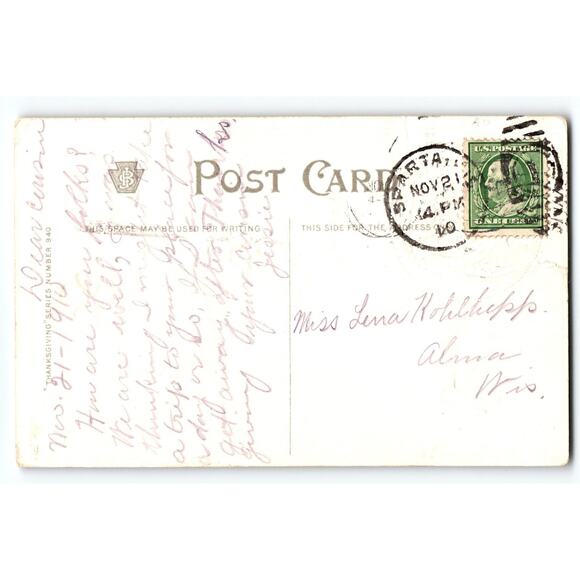 POST CARD
THIS SPACE MAY BE USED FOR WRITING
THIS SIDE FOR THE ADDRESS
"THANKSGIVING" SERIES NUMBER 940
PB
SPARTA
NOV 21
4 PM
10
U.S. POSTAGE
Nov. 21-1910
Dear cousin
How are you folks?
We are well,
thinking I might take
a trip to your place for
a day or so, if I can
get away after Thanks
giving
Your cousin
Jessie
Miss Lena Kohlhepp.
Alma
Wis.